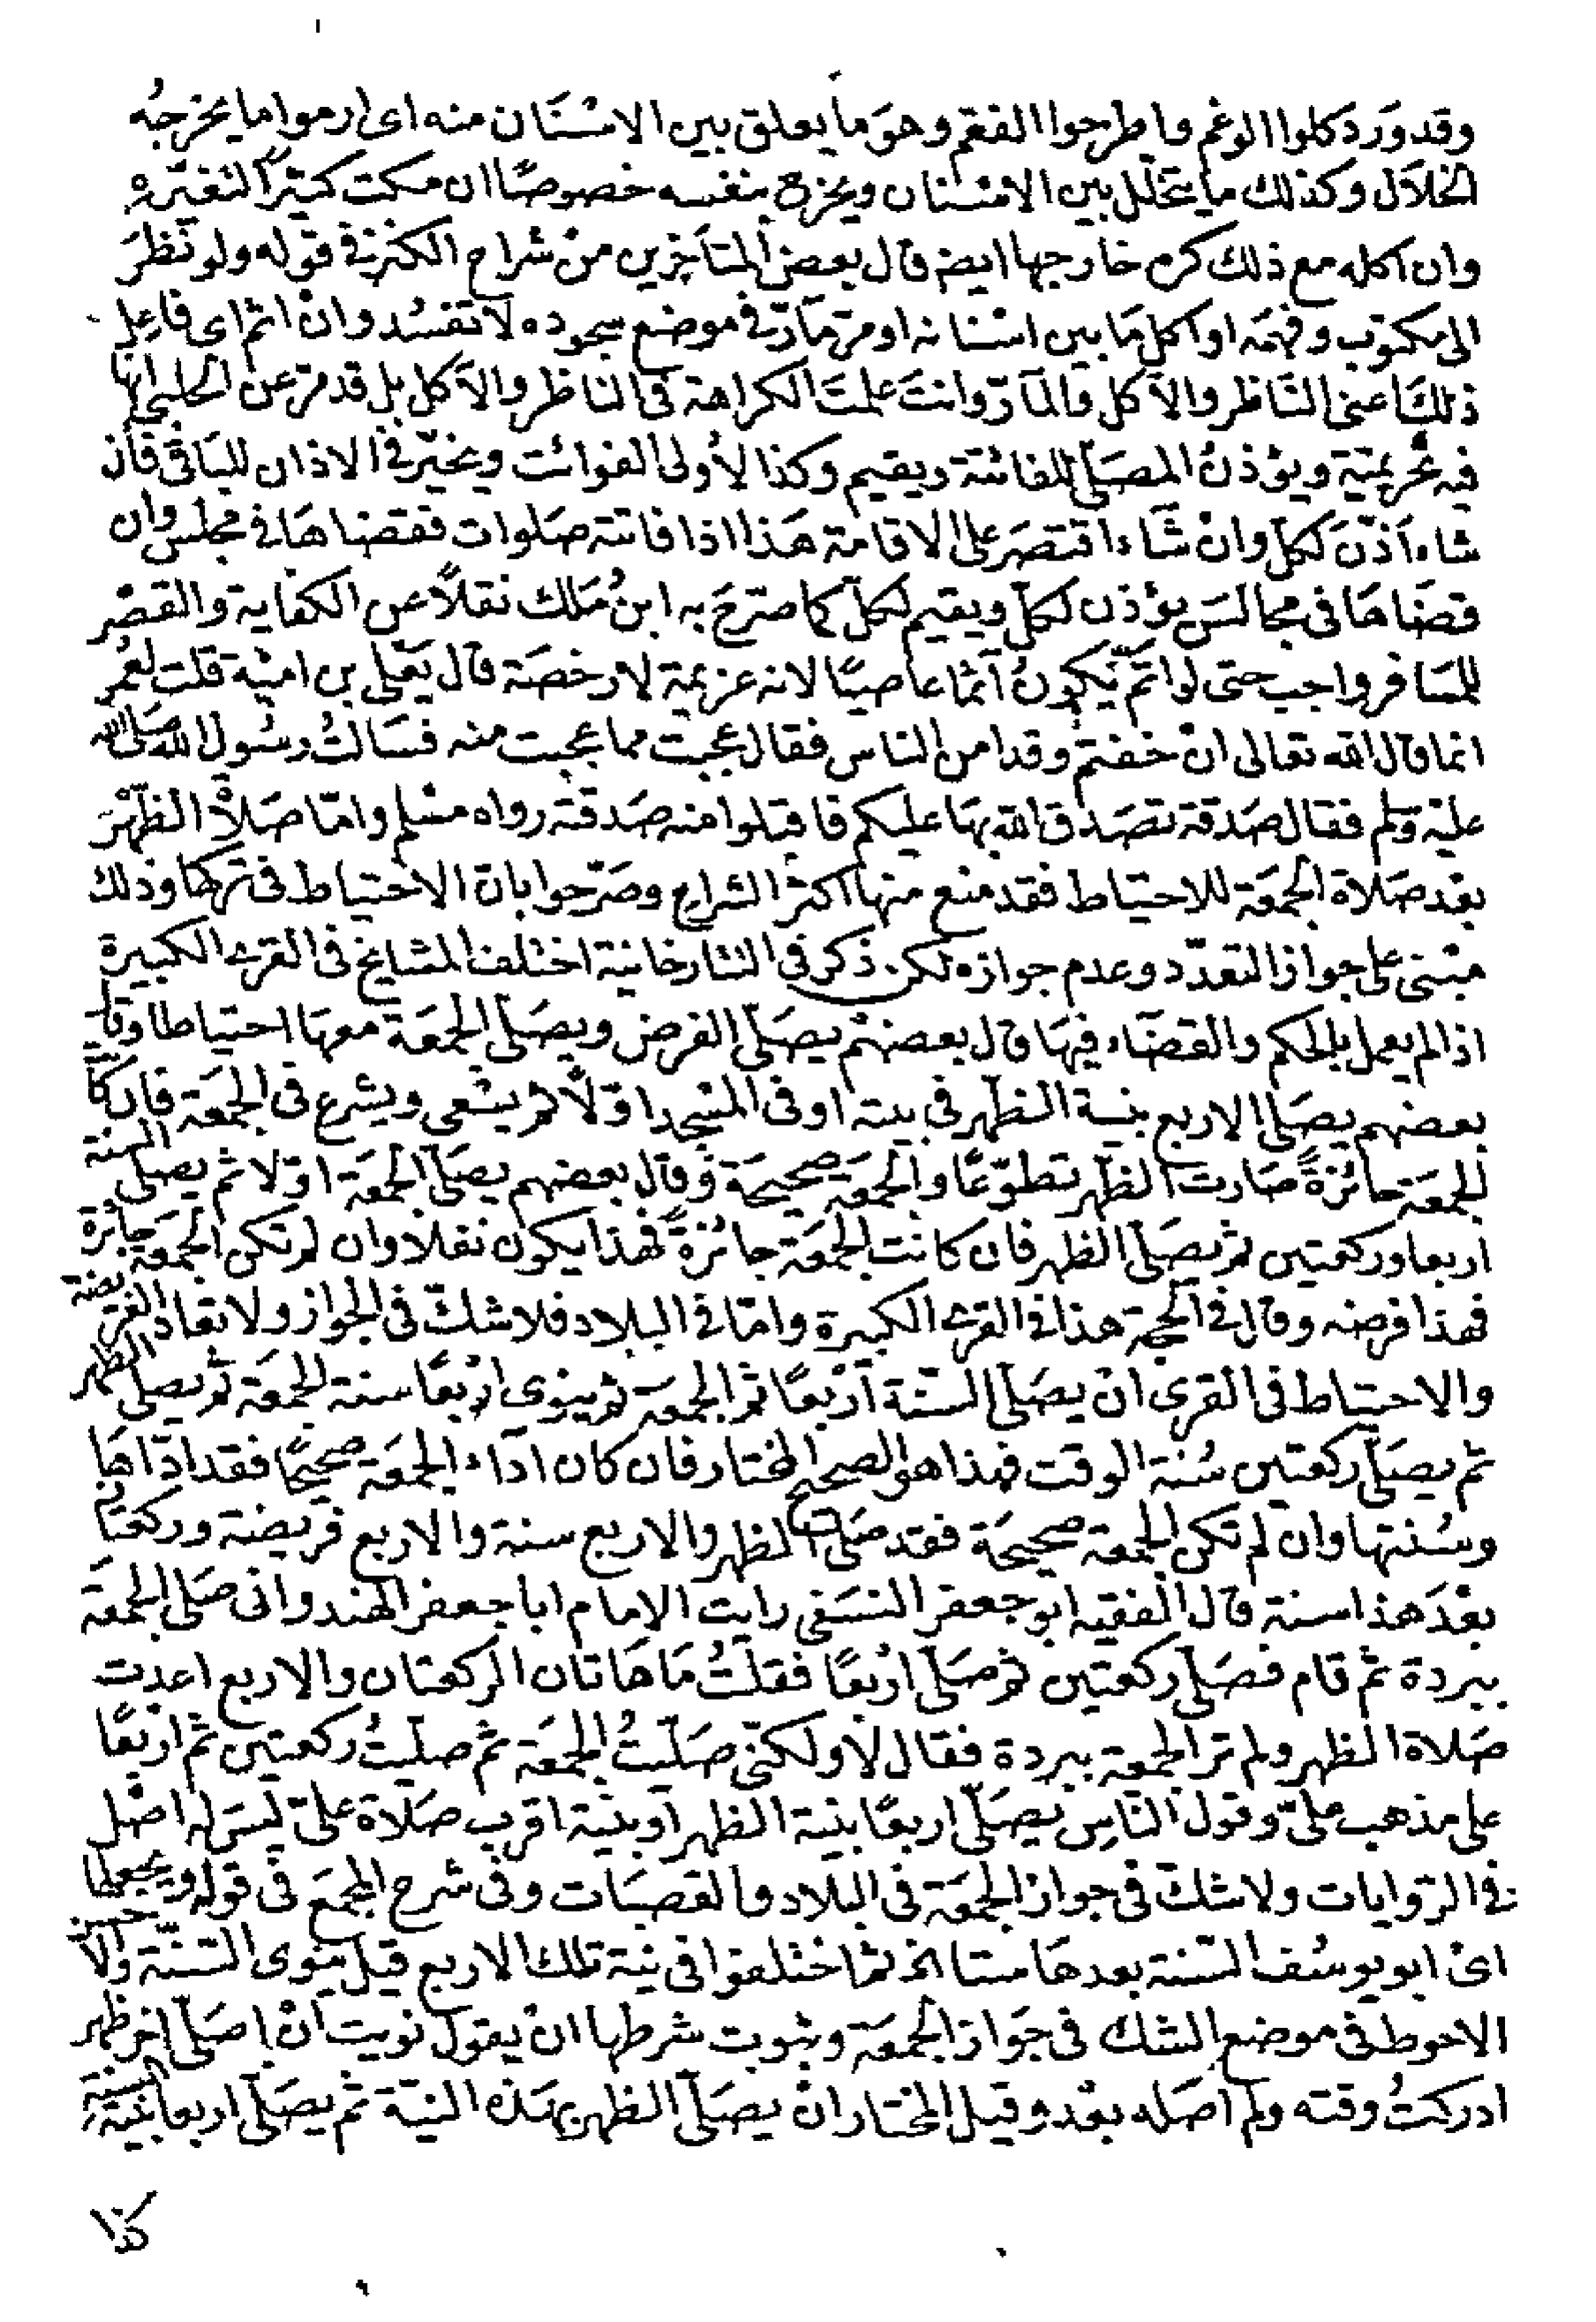 وقد ورد كلوا الوغم واطرحوا الفغم وهو ما يعلق بين الاسنان منه اى ارموا ما يخرجه
الخلال وكذلك ما يتخلل بين الاسنان ويخرج بنفسه خصوصًا ان مكث كثيرًا لتغيّره
وان اكله مع ذلك كره خارجها ايضا قال بعض المتأخرين من شراح الكنز فى قوله ولو نظر
الى مكتوب وفهمه او اكل ما بين اسنانه او مرّ مارّ فى موضع سجوده لا تفسد وان اثم اى فاعل
ذلك اعنى الناظر والآكل والمارّ وانت علمت الكراهة فى الناظر والآكل بل قد مر عن الحلبى انها
فيه تحريمية ويؤذن المصلى للفائتة ويقيم وكذا لأولى الفوائت ويخيّر فى الاذان للباقى فان
شاء أذّن لكلّ وان شاء اقتصر على الاقامة هذا اذا فاتته صلوات فقضاها فى مجلس وان
قضاها فى مجالس يؤذن لكلّ ويقيم لكلّ كما صرّح به ابن ملك نقلاً عن الكفاية والقصر
للمسافر واجب حتى لو اتمّ يكون آثما عاصيًا لانه عزيمة لا رخصة قال يعلى بن امية قلت لعمر
انما قال الله تعالى ان خفتم وقد امن الناس فقال عجبت مما عجبت منه فسالت رسول الله صلى الله
عليه وسلم فقال صدقة تصدق الله بها عليكم فاقبلوا منه صدقته رواه مسلم وامّا صلاة الظهر
بعد صلاة الجمعة للاحتياط فقد منع منها اكثر الشراح وصرّحوا بان الاحتياط فى تركها وذلك
مبنى على جواز التعدّد وعدم جوازه لكن ذكر فى التتارخانية اختلف المشايخ فى القرى الكبيرة
اذا لم يعمل بالحكم والقضاء فيها قال بعضهم يصلى الفرض ويصلى الجمعة معها احتياطا وقال
بعضهم يصلى الاربع بنية الظهر فى بيته او فى المسجد اوّلًا ثم يسعى ويشرع فى الجمعة فان كا
الجمعة جائزةً صارت الظهر تطوّعًا والجمعة صحيحة وقال بعضهم يصلى الجمعة اوّلا ثم يصلى السنة
اربعا وركعتين ثم يصلى الظهر فان كانت الجمعة جائزةً فهذا يكون نفلا وان لم تكن الجمعة جائزة
فهذا فرضه وقال فى الحجة هذا فى القرى الكبيرة وامّا فى البلاد فلا شكّ فى الجواز ولا تعاد الفريضة
والاحتياط فى القرى ان يصلى السنّة أربعًا ثم الجمعة ثم ينوى اربعًا سنة الجمعة ثم يصلى الظهر
ثم يصلى ركعتين سُنة الوقت فهذا هو الصحيح المختار فان كان اداء الجمعة صحيحًا فقد ادّاها
وسُنتها وان لم تكن الجمعة صحيحة فقد صلى الظهر والاربع سنة والاربع فريضة وركعتان
بعد هذا سنة قال الفقيه ابو جعفر النسفى رايت الامام ابا جعفر الهندوانى صلى الجمعة
ببردة ثم قام فصلى ركعتين ثم صلى اربعًا فقلتُ ما هاتان الركعتان والاربع اعدت
صلاة الظهر ولم تر الجمعة ببردة فقال لا ولكنّى صلّيتُ الجمعة ثم صليتُ ركعتين ثم اربعًا
على مذهب علىّ وقول الناس يصلّى اربعًا بنية الظهر أو بنية اقرب صلاة علىّ ليس له اصل
فى الروايات ولا شكّ فى جواز الجمعة فى البلاد والقصبات وفى شرح المجمع فى قوله ويجعلها
اى ابو يوسُف السّنة بعدها ستا اختلفوا فى نية تلك الاربع قيل ينوى السّنّة والا
الاحوط فى موضع الشك فى جواز الجمعة وثبوت شرطها ان يقول نويت ان اصلى اخر ظهر
ادركتُ وقته ولم اصله بعد وقيل المختار ان يصلى الظهر بهذه النيّة ثم يصلى اربعا بنية
كذا